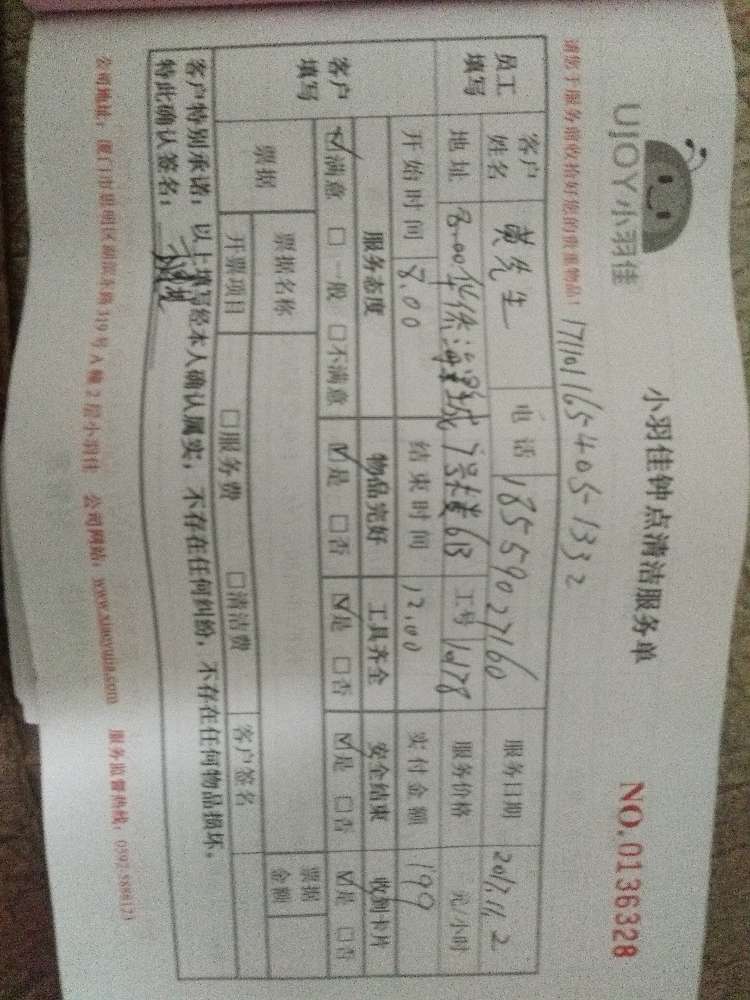 UJOY小羽佳
小羽佳钟点清洁服务单
NO.0136328
请您于服务前收拾好您的贵重物品！
171101165405-1332
员工填写
客户姓名 黄先生 电话 18559027160 服务日期 2017.11.2
地址 工号 服务价格 元/小时
开始时间 8.00 结束时间 12.00 实付金额 199
客户填写
服务态度 物品完好 工具齐全 安全结束 收到卡片
☑满意 □一般 □不满意 ☑是 □否 ☑是 □否 ☑是 □否 ☑是 □否
票据 票据名称 票据金额
开票项目 □服务费 □清洁费 客户签名
客户特别承诺：以上填写经本人确认属实，不存在任何纠纷，不存在任何物品损坏。
特此确认签名：
公司地址：厦门市思明区 319号A幢2层小羽佳 公司网站：www.xiaoyujia.com 服务监督热线：